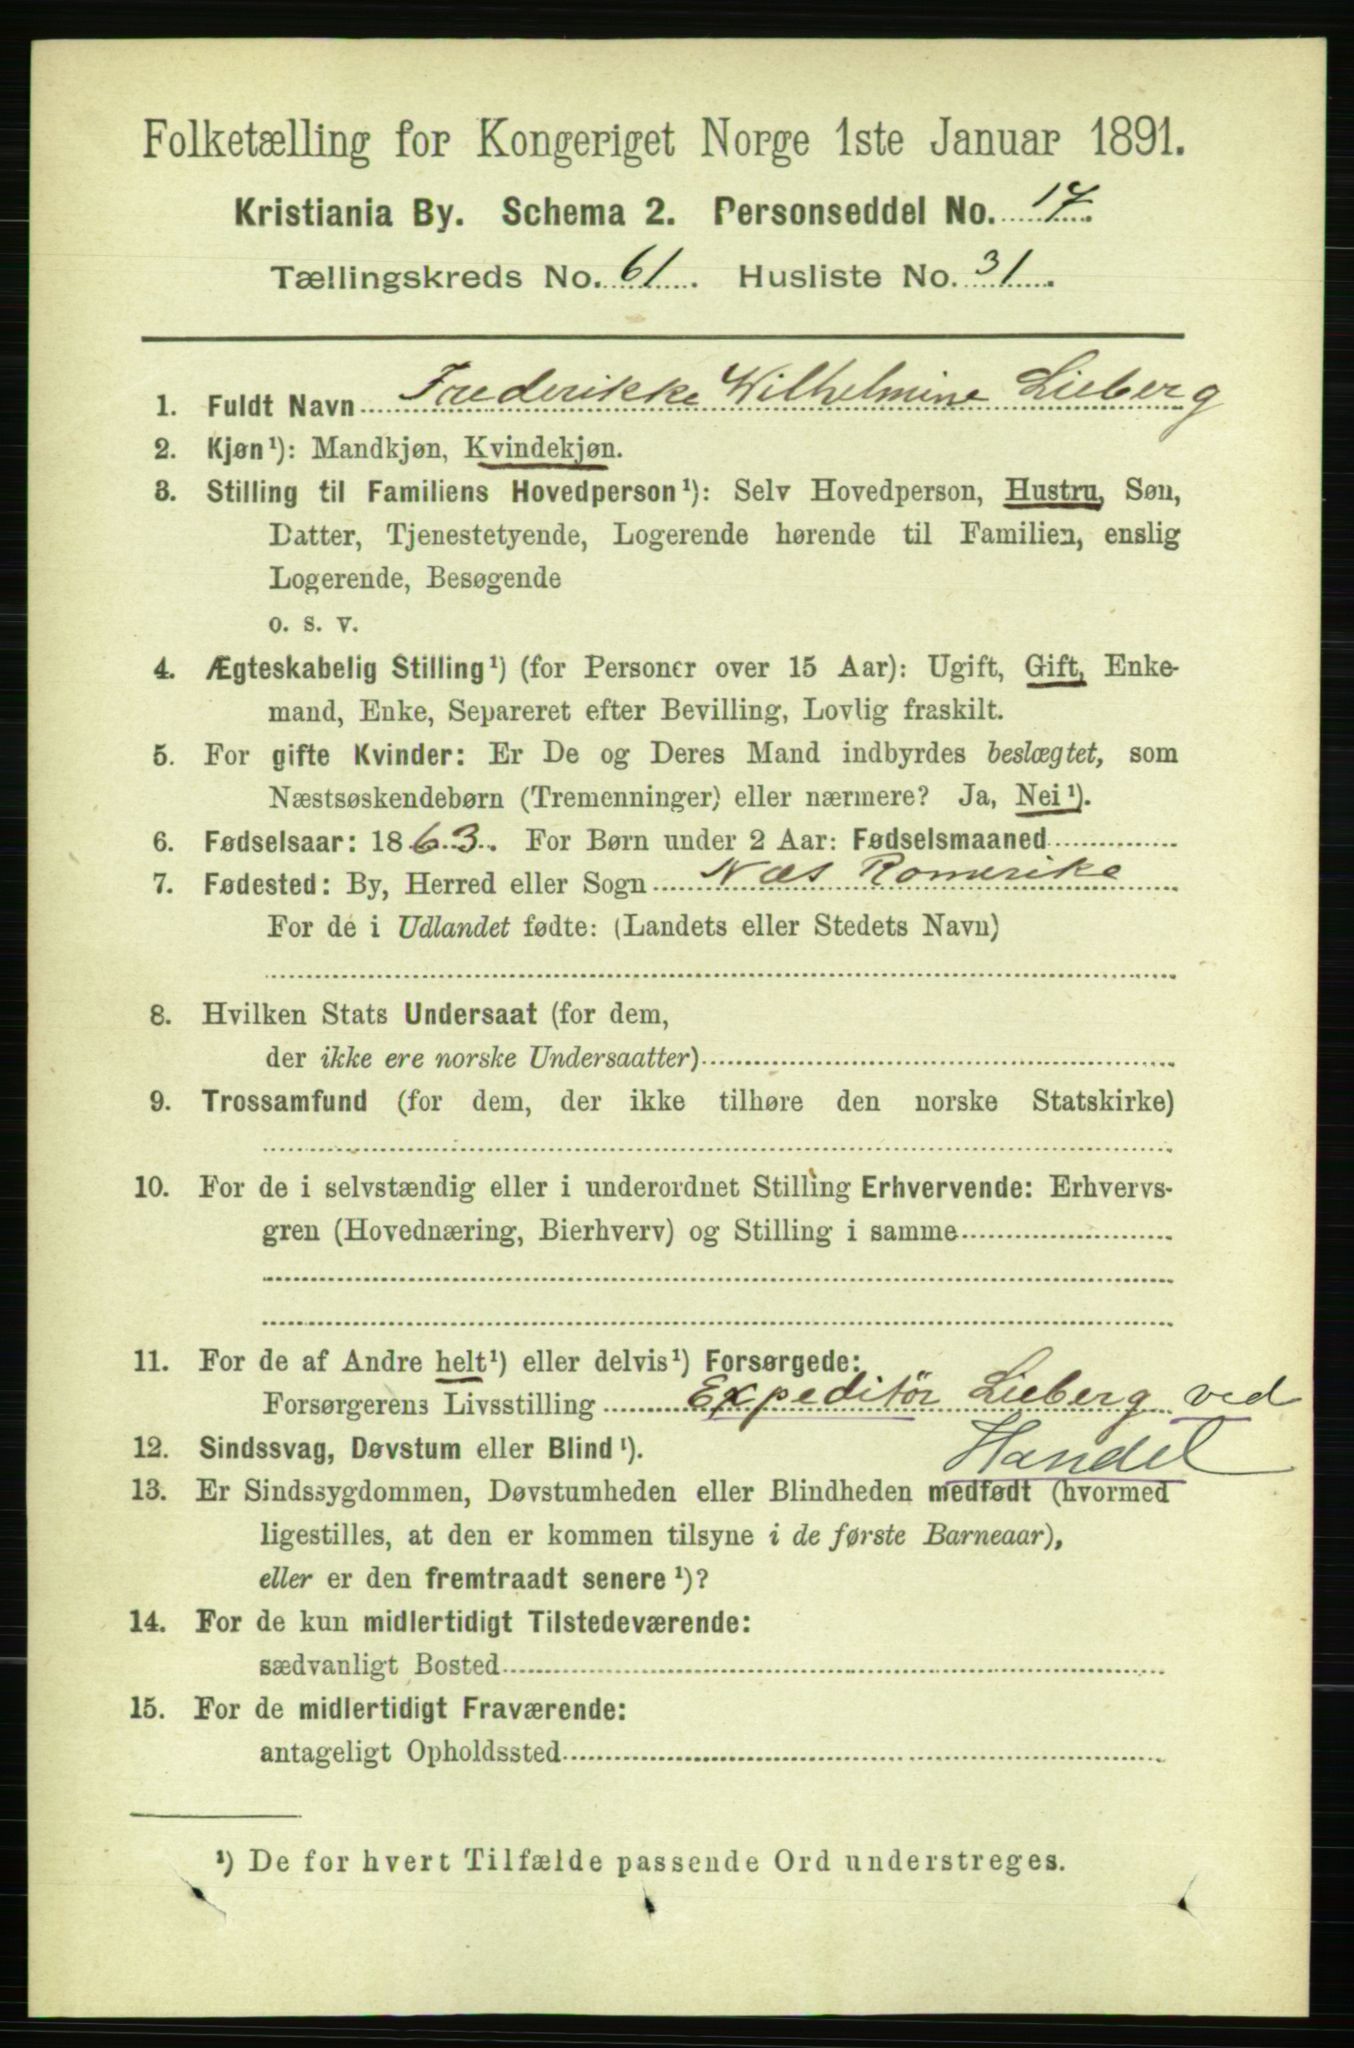 Folketælling for Kongeriget Norge 1ste Januar 1891.
Kristiania By. Schema 2. Personseddel No. 17.
Tællingskreds No. 61. Husliste No. 31.
1. Fuldt Navn Frederikke Wilhelmine Lieberg
2. Kjøn¹): Mandkjøn, Kvindekjøn.
3. Stilling til Familiens Hovedperson¹): Selv Hovedperson, Hustru, Søn,
Datter, Tjenestetyende, Logerende hørende til Familien, enslig
Logerende, Besøgende
o. s. v.
4. Ægteskabelig Stilling¹) (for Personer over 15 Aar): Ugift, Gift, Enke-
mand, Enke, Separeret efter Bevilling, Lovlig fraskilt.
5. For gifte Kvinder: Er De og Deres Mand indbyrdes beslægtet, som
Næstsøskendebørn (Tremenninger) eller nærmere? Ja, Nei¹).
6. Fødselsaar: 1863. For Børn under 2 Aar: Fødselsmaaned
7. Fødested: By, Herred eller Sogn Næs Romerike
For de i Udlandet fødte: (Landets eller Stedets Navn)
8. Hvilken Stats Undersaat (for dem,
der ikke ere norske Undersaatter)
9. Trossamfund (for dem, der ikke tilhøre den norske Statskirke)
10. For de i selvstændig eller i underordnet Stilling Erhvervende: Erhvervs-
gren (Hovednæring, Bierhverv) og Stilling i samme
11. For de af Andre helt¹) eller delvis¹) Forsørgede:
Forsørgerens Livsstilling Expeditör Lieberg ved
Handel
12. Sindssvag, Døvstum eller Blind¹).
13. Er Sindssygdommen, Døvstumheden eller Blindheden medfødt (hvormed
ligestilles, at den er kommen tilsyne i de første Barneaar),
eller er den fremtraadt senere¹)?
14. For de kun midlertidigt Tilstedeværende:
sædvanligt Bosted
15. For de midlertidigt Fraværende:
antageligt Opholdssted
¹) De for hvert Tilfælde passende Ord understreges.